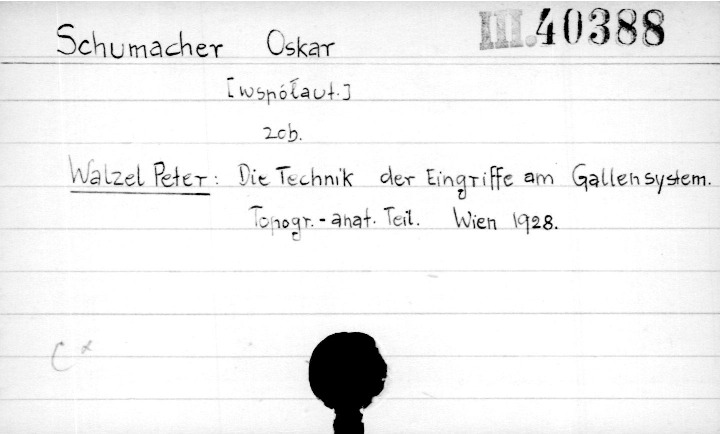 Schumacher Oskar III.40388
[współaut.]
zob.
Walzel Peter: Die Technik der Eingriffe am Gallensystem.
Topogr.-anat. Teil. Wien 1928.
C x